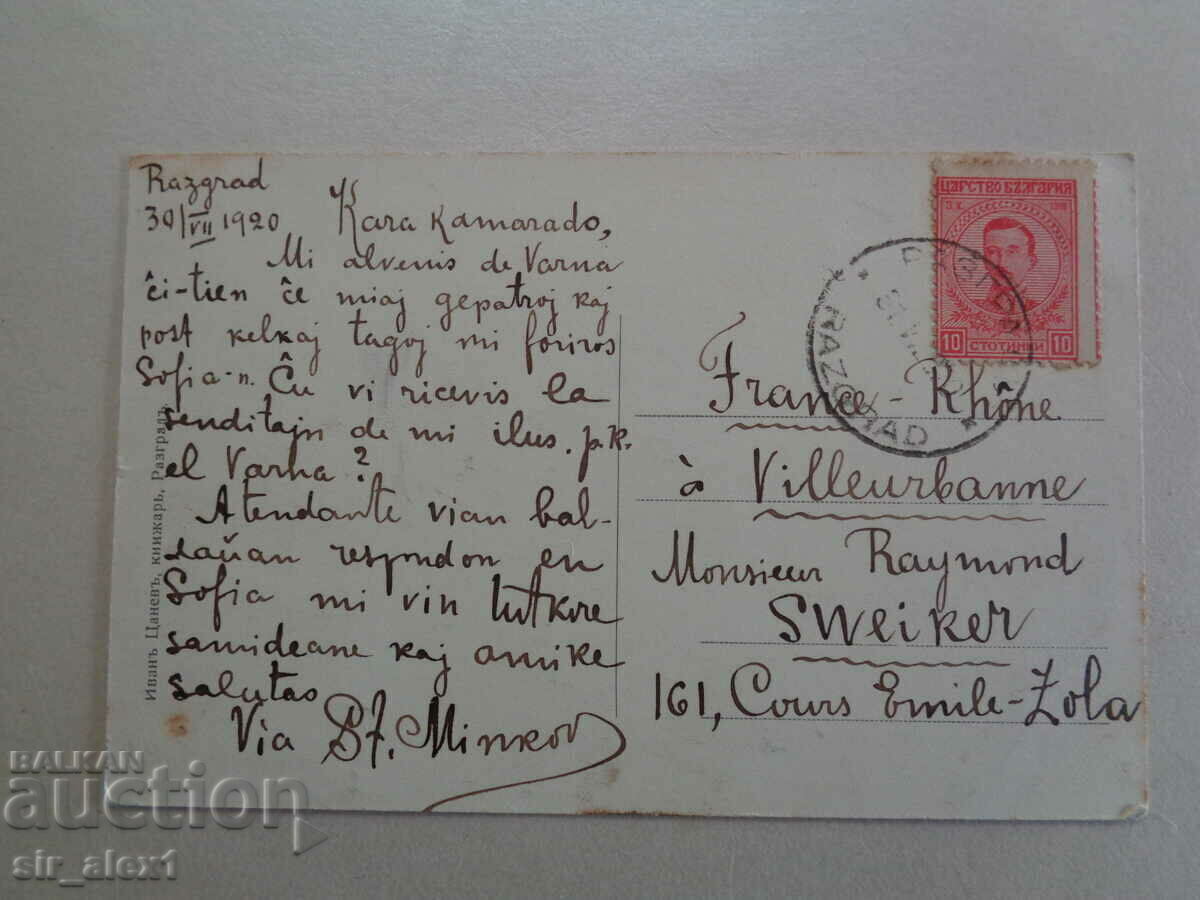 Razgrad
30/VII 1920
Kara Kamarado,
Mi alvenis de Varna
ĉi-tien ĉe miaj gepatroj kaj
post kelkaj tagoj mi foriros
Sofia-n. Ĉu vi ricevis la
senditajn de mi ilus. p.k.
el Varna?
Atendante vian bal-
daŭan respondon en
Sofia mi vin tutkore
samideane kaj amike
salutas
Via St. Minkov
Иванъ Цаневъ, книжарь, Разградъ.
ЦАРСТВО БЪЛГАРИЯ
10 СТОТИНКИ 10
RAZGRAD
France-Rhône
à Villeurbanne
Monsieur Raymond
Sweiker
161, Cours Emile-Zola
BALKAN
auction
sir_alex1